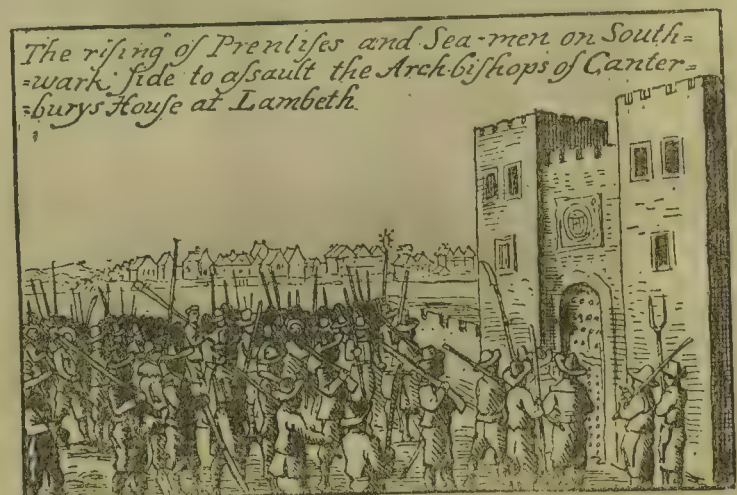 The riſing of Prentiſes and Sea-men on South=
=wark ſide to aſsault the Arch-biſhops of Canter=
=burys Houſe at Lambeth.